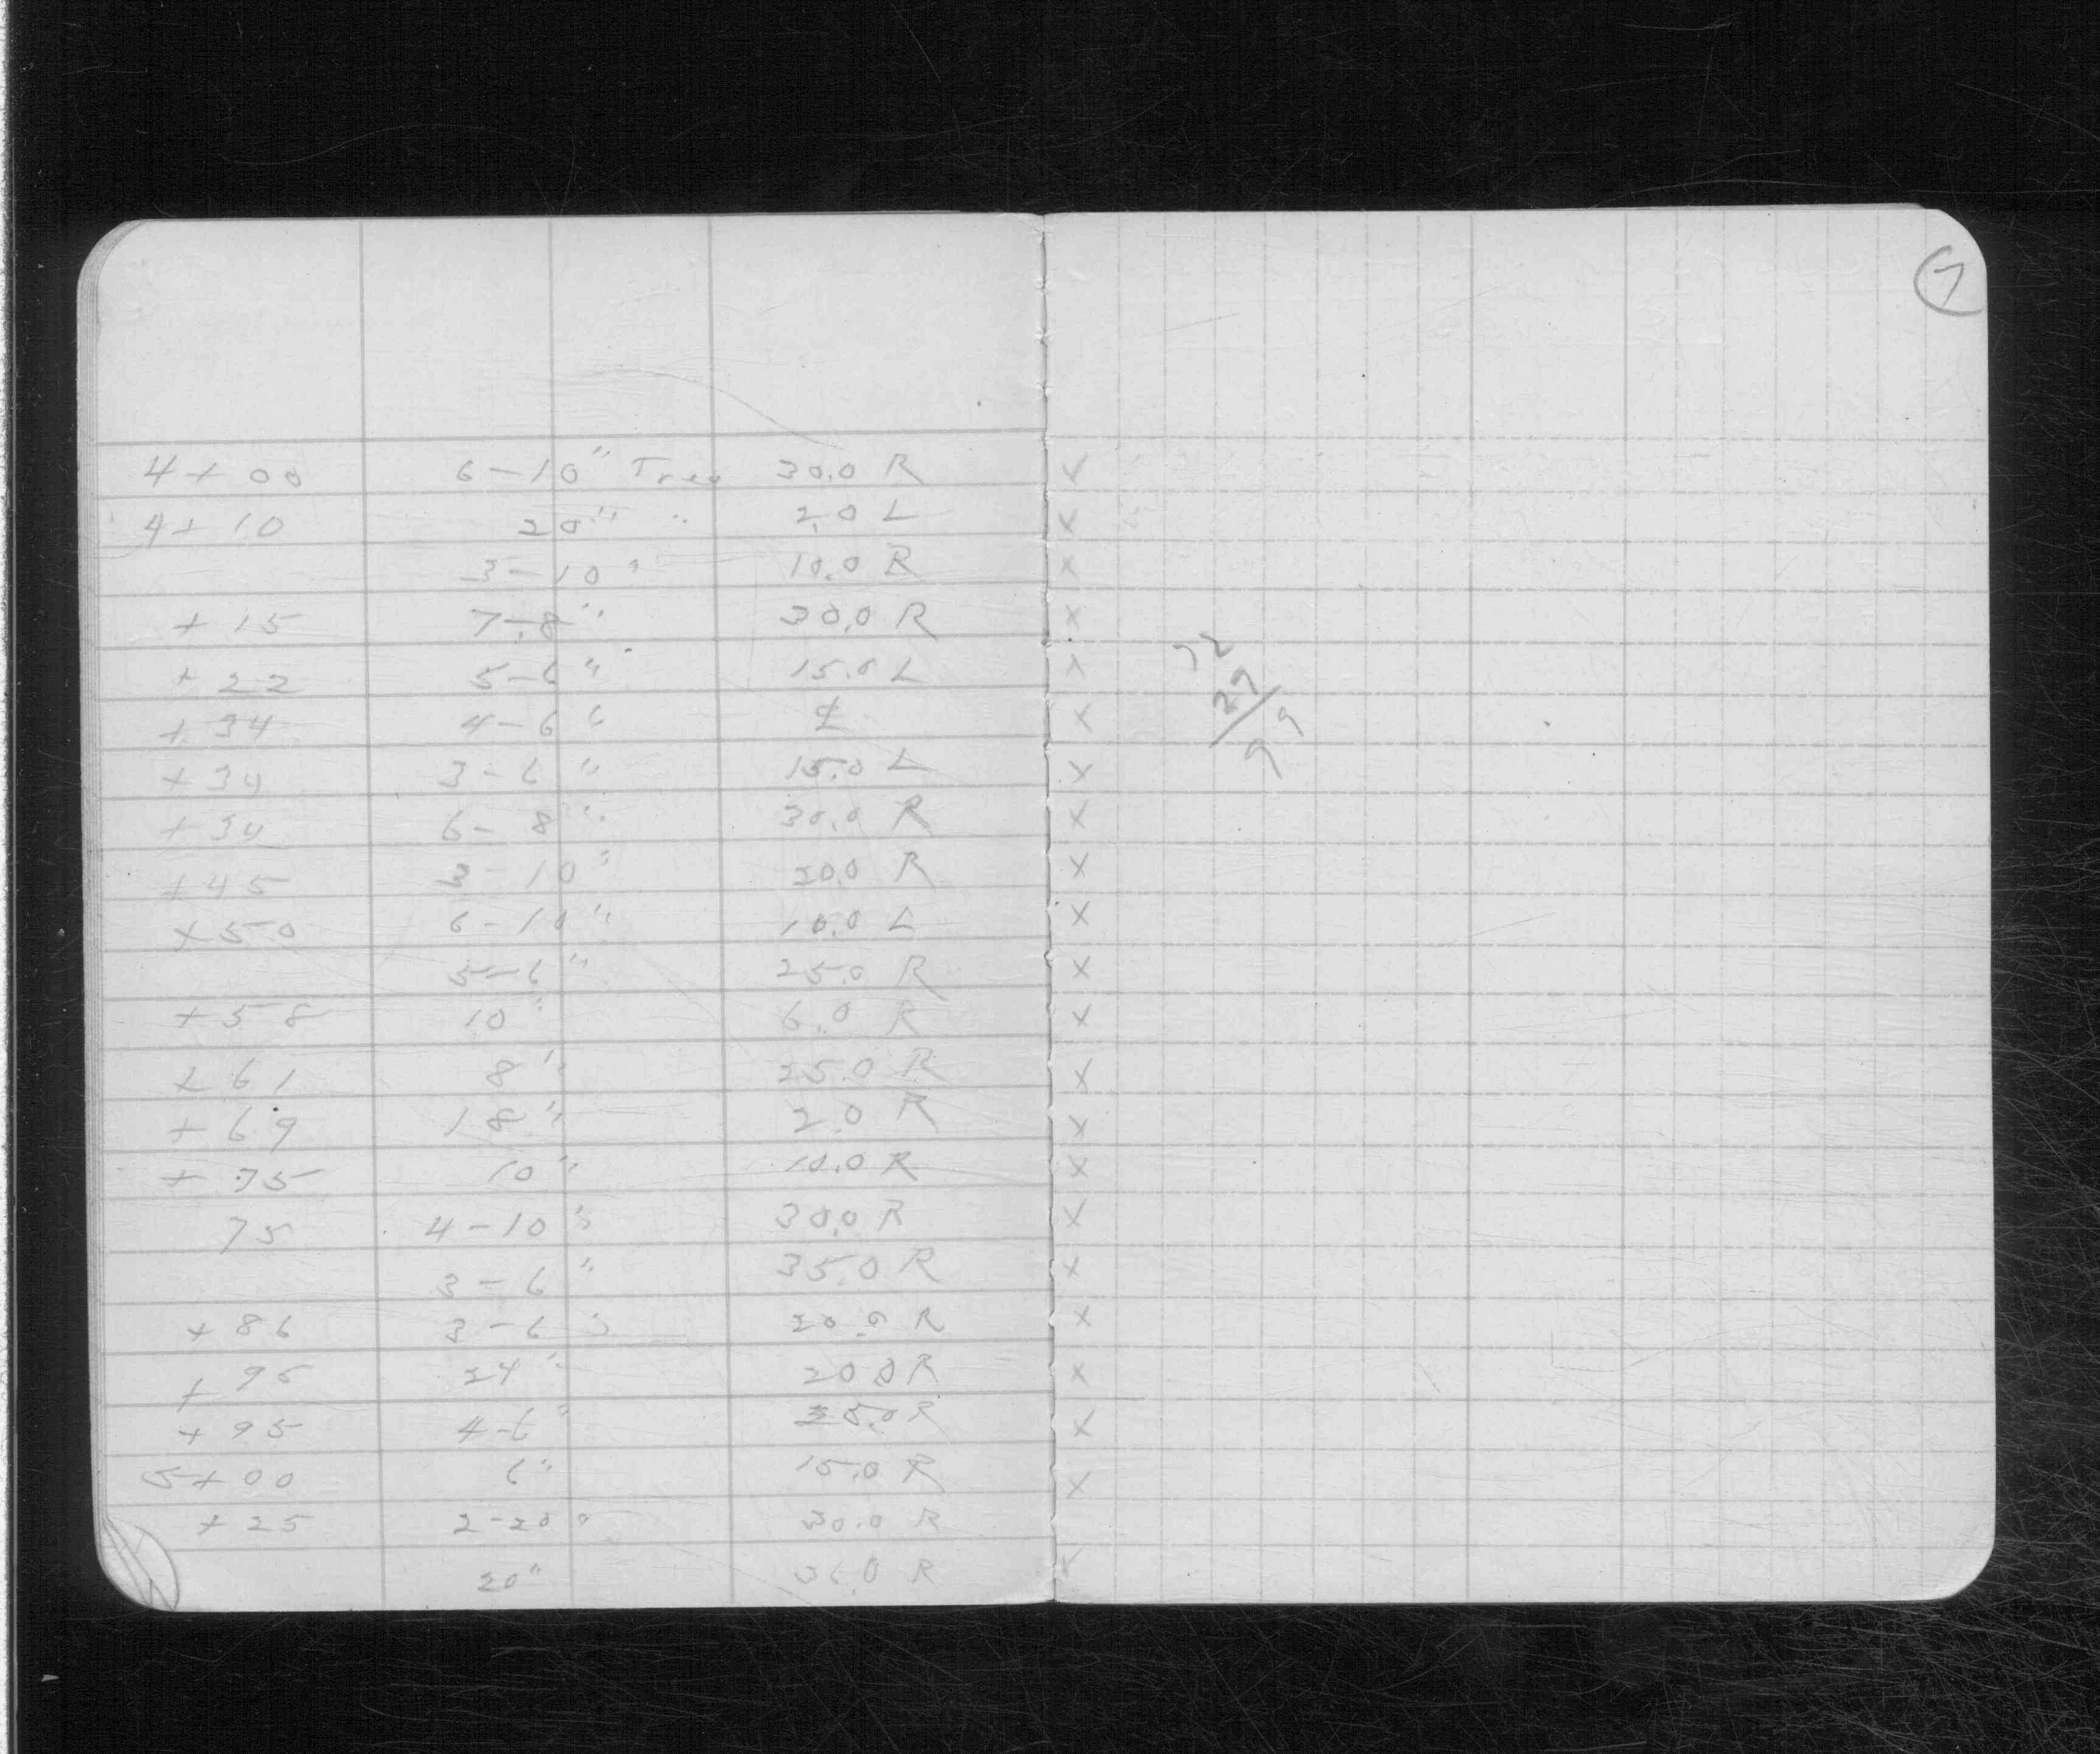 7
4+00 6-10" Tree 30.0 R x
4+10 20" " 2.0 L x
3-10" 10.0 R x
+15 7-8" 30.0 R x
+22 5-6" 15.0 L x
+34 4-6" ℄ x
+34 3-6" 15.0 L x
+34 6-8" 30.0 R x
+45 10" 20.0 R x
+50 6-10" 10.0 L x
5-6" 25.0 R x
+58 10" 6.0 R x
+61 8" 25.0 R x
+69 18" 2.0 R x
+75 10" 10.0 R x
75 4-10" 30.0 R x
3-6" 35.0 R x
+86 3-6" 20.0 R x
+95 24" 20.0 R x
+95 4-6" R x
5+00 6" 15.0 R x
+25 2-20" 30.0 R
20" 36.0 R x
72
27
99